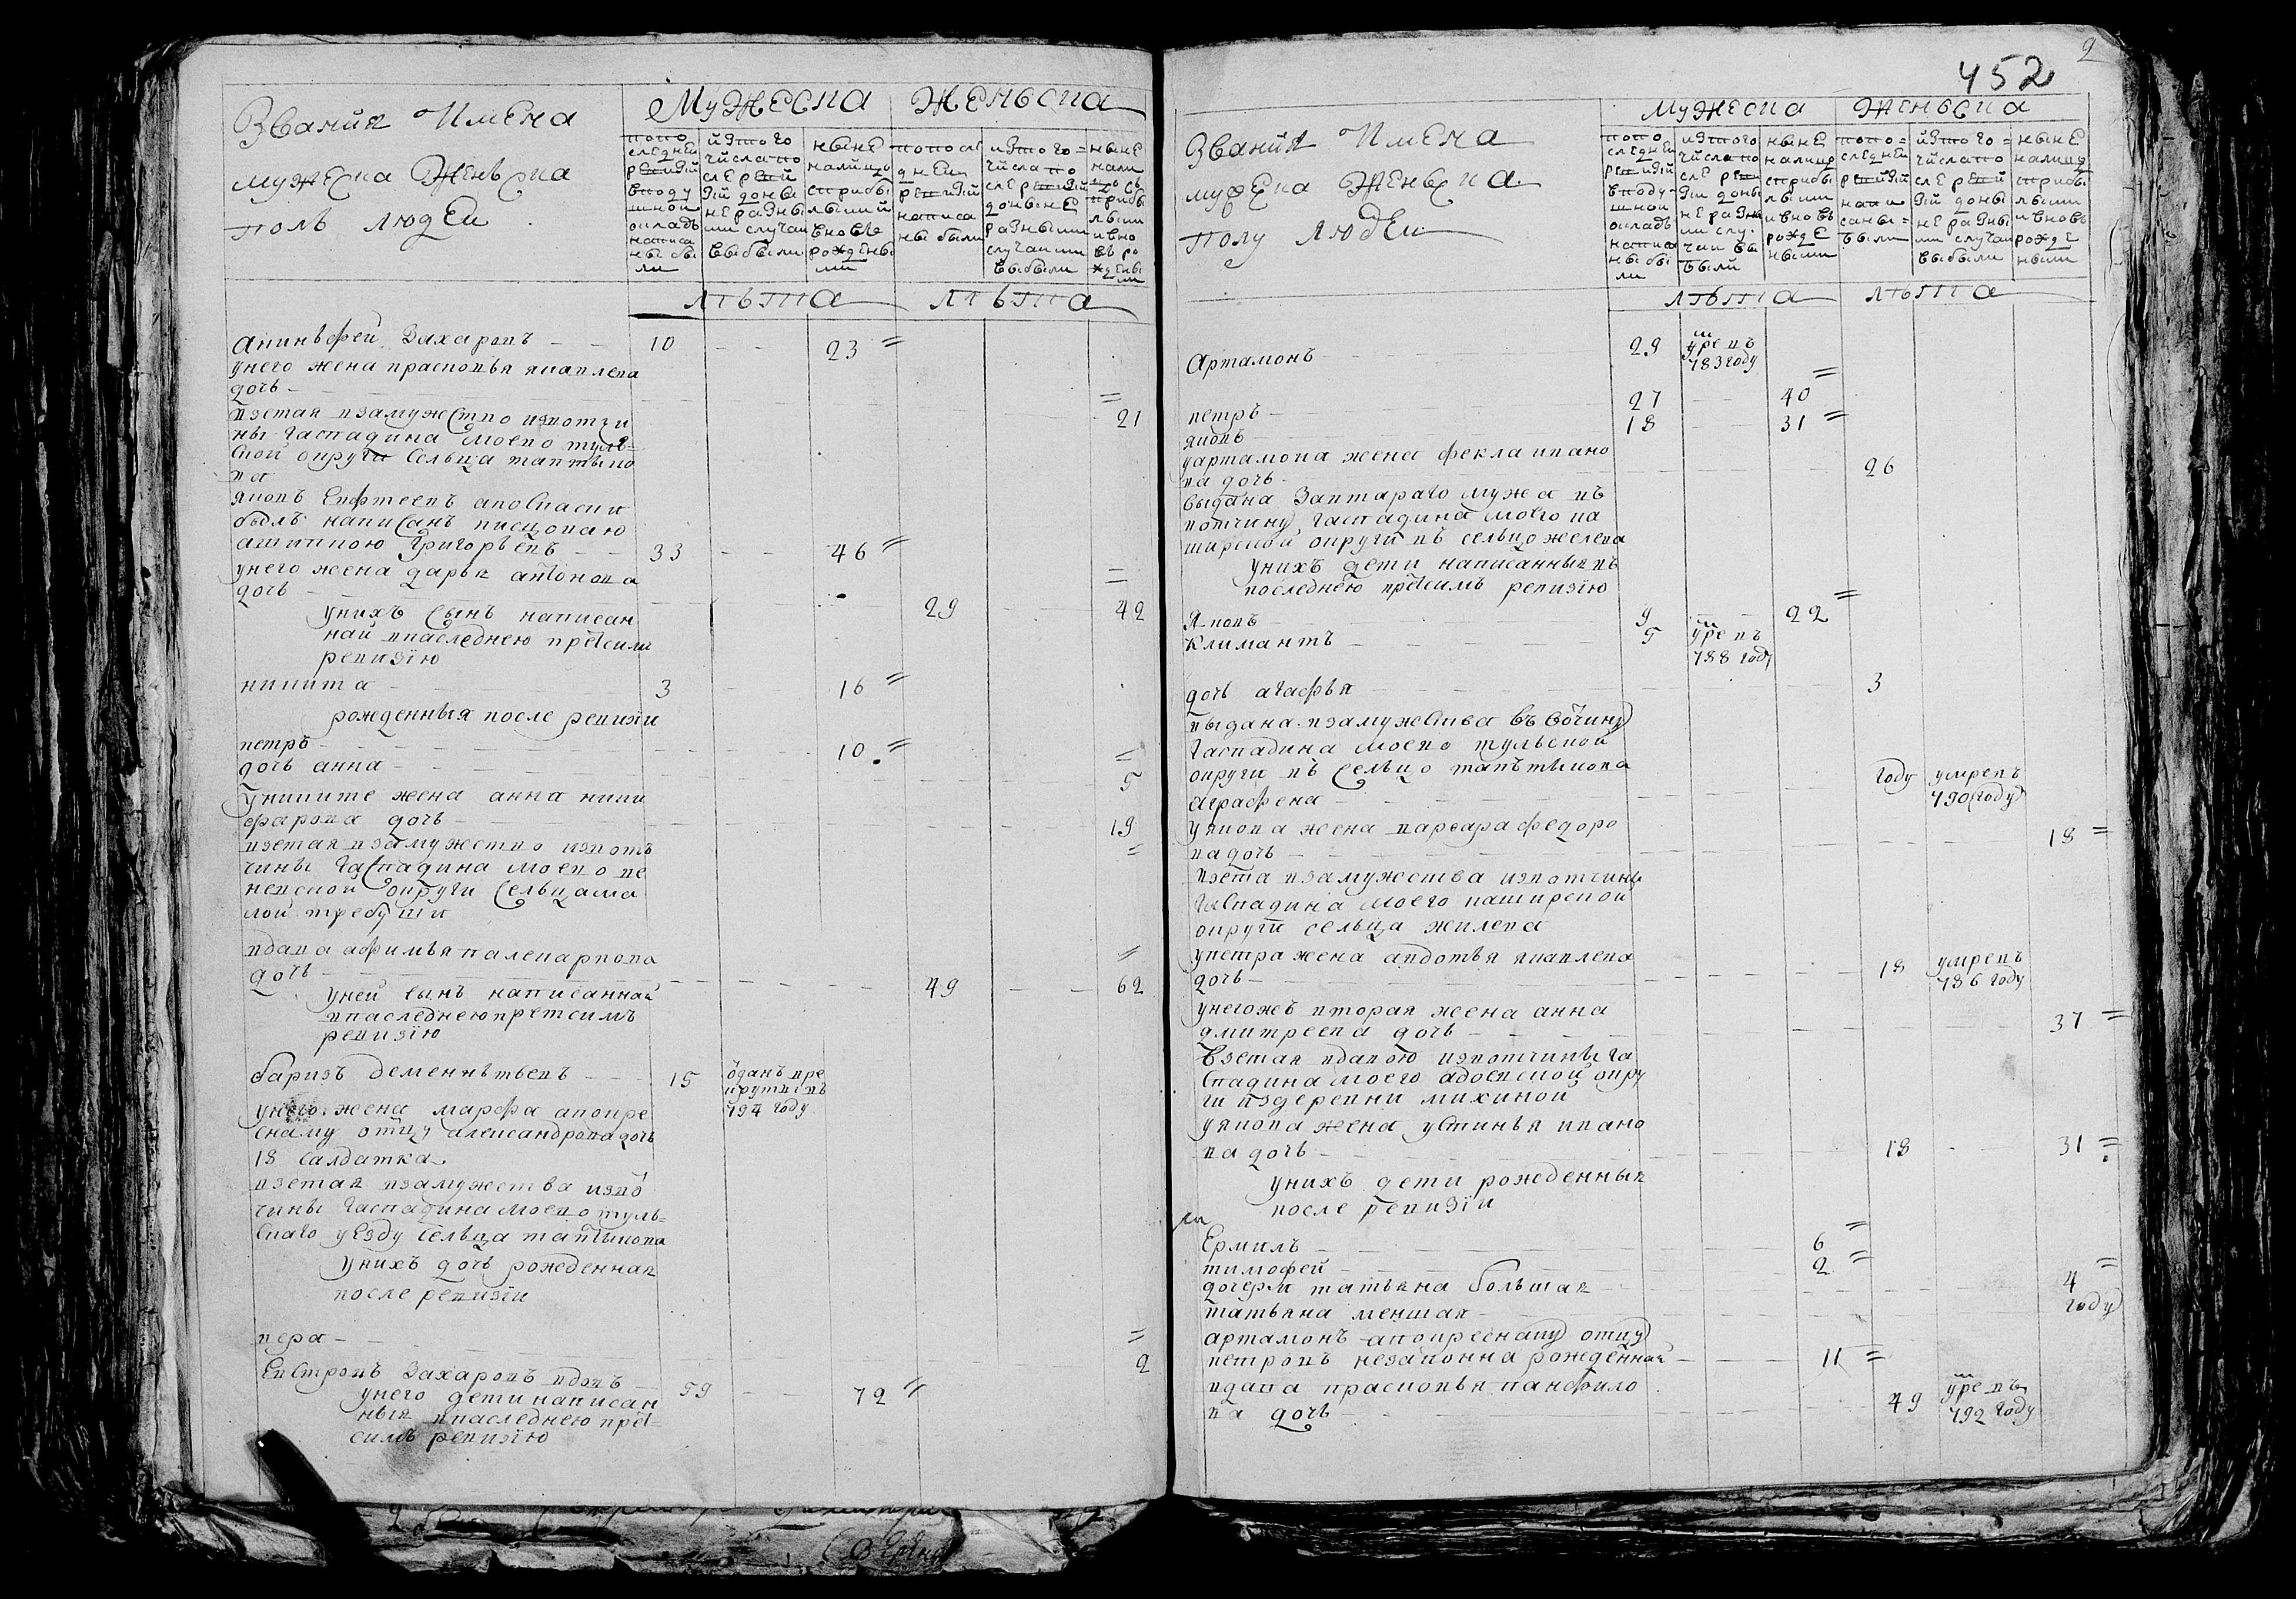 Звания Имена
мужеска Женьска
полъ людей
Мужеска Женьска
попо следней ревизий вподушной окладъ написаны были
изтого числа по сле ревизий доныне разными случаи выбыли
ныне налицо сприбылыми ивновь рождеными
попоследней ревизий написаны были
изтого числа по сле ревизий доныне разными случаи выбыли
ныне налицо сприбылыми ивновь рождеными
лѣта лѣта
Аникѣфей Захаровъ 10 23
унего жена прасковья яковлева
дочь 21
взетая взамужство извотчи
ны гаспадина моево туль=
ской округи сельца таптыко
ва
яковъ Евфтеевъ аповласки
былъ написанъ писцовою
ашипкою Григорьевъ 33 46
унего жена дарья антонова
дочь 29 42
унихъ сынъ написан
най впаследнею пред симъ
ревизїю
никита 3 16
рожденныя после ревизїи
петръ 10
дочь анна 5
Униките жена анна ники
фарова дочь 19
взетая взамужство извотъ
чины гаспадина моево ве
невской округи Сельца ма
лой требуши
вдава афимья палекарпова
дочь 49 62
Уней сынъ написаннай
впаследнею предсимъ
ревизїю
баризъ деменьтьевъ 15 одан вре круты въ 794 году
унего жена марфа апокре
снаму отцу александрова дочь
18 салдатка
взетая взамужества изво
чины гаспадина моево туль=
скаго уезду сельца таптыкова
Унихъ дочь рожденная
после ревизїи
вера 2
Евстропъ Захаровъ вдовъ 59 72
унего дети написан
ныя впаследнею пред=
симъ ревизїю
452
2
Звания Имена
мужска Женьска
полу людей
Мужеска Женьска
попо следней ревизий вподу-шной окладъ написаны были
изтого числа по сле реви зїи доны не разны ми слу-чаи выбыли
ныне налицо сприбылыми ивновь рождеными
попо=следней ревизий написаны=были
изтого=числа по сле ревизїи доны не разны ми случаи выбыли
ныне налицо сприбылыми ивновь рождеными
лѣта лѣта
Артамонъ 29 умре въ 783 году
петръ 27 40
яковъ 18 31
уартамона жена фекла ивано
ва дочь 26
выдана Завтараго мужа въ
вотчину гаспадина моего ка
ширской округи въ сельцо желева
Унихъ дети написанныя въ
последнею предсимъ ревизїю
Яковъ 9 22
Климантъ 5 умре въ 788 году
дочь агафья 3
выдана взамужства въ вочину
гаспадина моево тульской
округи въ сельцо тапътыкова
аграфена году умре въ 790 году
Уякова жена варвара федоро
ва дочь 18
взета взамужества извотчины
гаспадина моего каширской
округи сельца жилева
упетра жена авдотья яковлева
дочь 18 умре въ 786 году
унегожъ вторая жена анна
дмитреева дочь 37
взетая вдавою извотчины га
спадина моего адоевской окру
ги издеревни михиной
уякова жена устинья ивано
ва дочь 18 31
унихъ дети рожденныя
после ревизїи
Ермилъ 6
тимофей 2
дочери татьяна большая 4
татьяна меншая году
артамонъ апокреснаму отцу
петровъ незаконна рожденнай 11
вдава прасковья панфило
ва дочь 49 умре въ 792 году